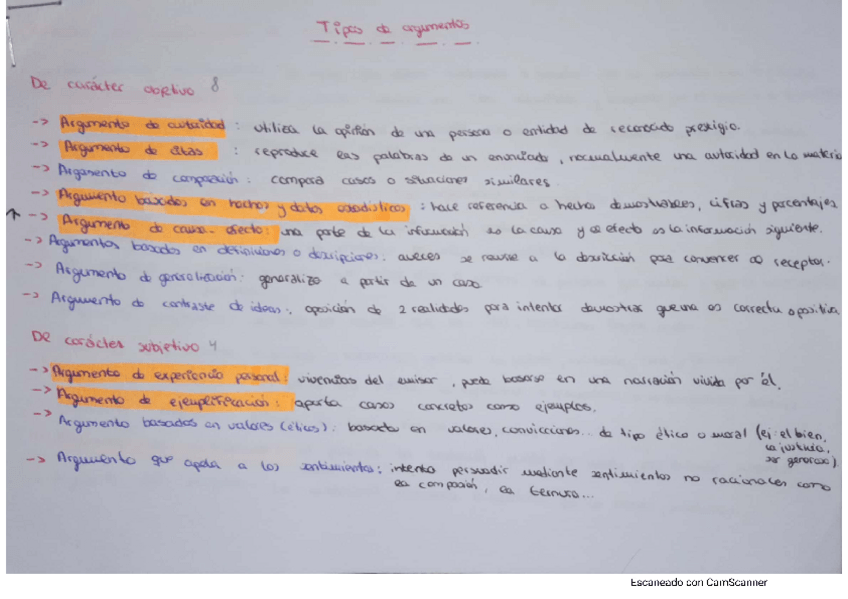 Tipos de argumentos
De carácter objetivo 8
-> Argumento de autoridad : utiliza la opinión de una persona o entidad de reconocido prestigio.
-> Argumento de citas : reproduce las palabras de un enunciado, normalmente una autoridad en la materia
-> Argumento de comparación : compara casos o situaciones similares.
-> Argumento basados en hechos y datos estadísticos : hace referencia a hechos demostrables, cifras y porcentajes
-> Argumento de causa-efecto : una parte de la información es la causa y el efecto es la información siguiente.
-> Argumentos basados en definiciones o descripciones : aveces se recurre a la descripción para convencer al receptor.
-> Argumento de generalización : generaliza a partir de un caso
-> Argumento de contraste de ideas : oposición de 2 realidades para intentar demostrar que una es correcta o positiva
De carácter subjetivo 4
-> Argumento de experiencia personal : vivencias del emisor, puede basarse en una narración vivida por él.
-> Argumento de ejemplificación : aporta casos concretos como ejemplos.
-> Argumento basados en valores (éticos) : basado en valores, convicciones... de tipo ético o moral (ej: el bien,
la justicia,
ser generoso)
-> Argumento que apela a los sentimientos : intenta persuadir mediante sentimientos no racionales como
la compasión, la ternura...
Escaneado con CamScanner